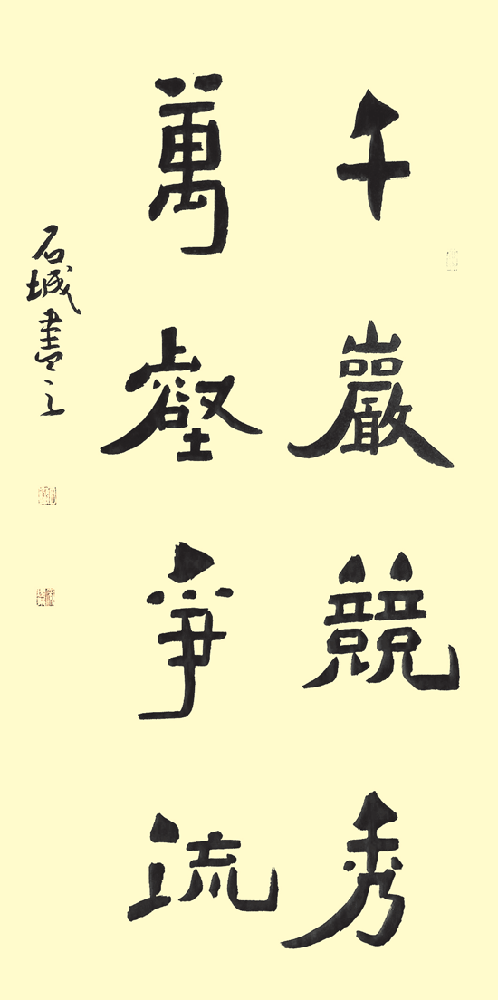 千巖競秀
萬壑爭流
石城書之